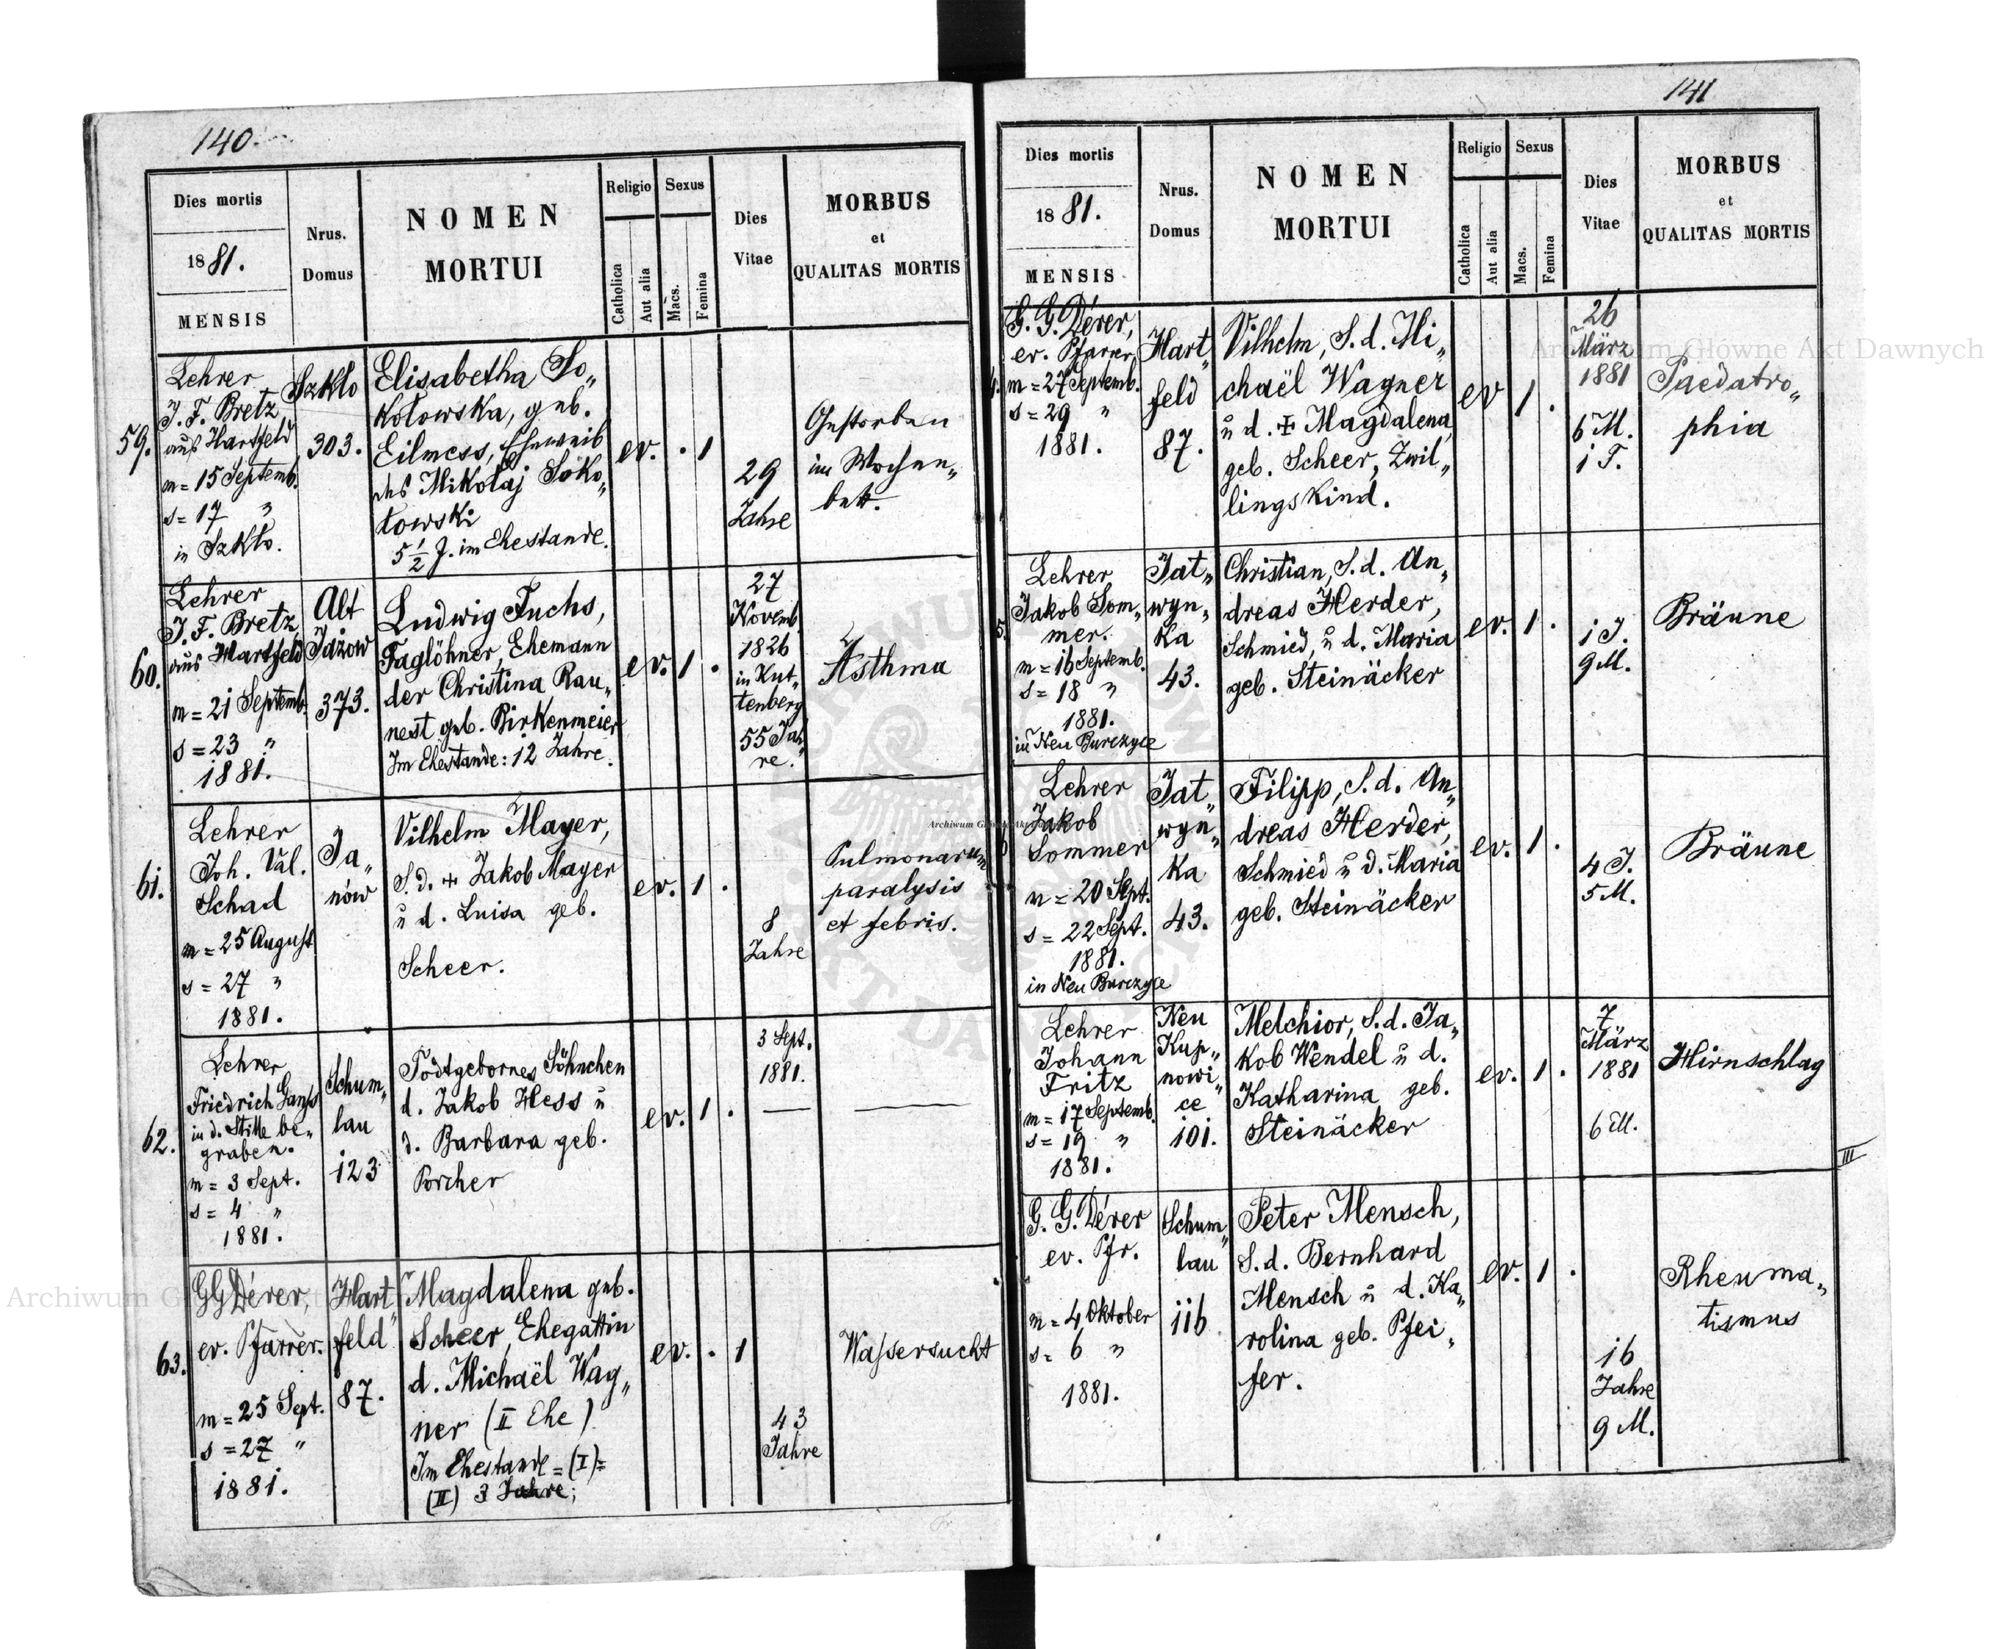 140.
Dies mortis
1881.
MENSIS
Nrus.
Domus
NOMEN
MORTUI
Religio
Catholica
Aut alia
Sexus
Macs.
Femina
Dies
Vitae
MORBUS
et
QUALITAS MORTIS
59.
Lehrer
J. F. Bretz
aus Hartfeld
m = 15 Septemb.
s = 17 "
in Szkło.
Szkło
303.
Elisabetha So„
kołowska, geb.
Eilmess, Eheweib
des Mikołaj Soko„
łowski
5 1/2 J. im Ehestande.
ev. . 1
29
Jahre
Gestorben
im Wochen„
bett.
60.
Lehrer
J. F. Bretz
aus Hartfeld
m = 21 Septemb.
s = 23 "
1881.
Alt
Jażow
373.
Ludwig Fuchs,
Taglöhner, Ehemann
der Christina Rau„
nest geb. Birkenmeier
Im Ehestande: 12 Jahre.
ev. 1 .
27
Novemb.
1826
in Kut„
tenberg
55 Jah„
re.
Asthma
61.
Lehrer
Joh. Val.
Schad
m = 25 August
s = 27 "
1881.
Ja„
nów
Vilhelm Mayer,
S. d. + Jakob Mayer
u d. Luisa geb.
Scheer.
ev. 1 .
8
Jahre
Pulmonarum
paralysis
et febris.
62.
Lehrer
Friedrich Ganss
in d. Stille be„
graben.
m = 3 Sept.
s = 4 "
1881.
Schum„
lau
123
Todtgebornes Söhnchen
d. Jakob Hess u
d. Barbara geb.
Porcher
ev. 1 .
3 Sept.
1881.
—
—
63.
G G Dérer,
ev. Pfarrer.
m = 25 Sept.
s = 27 "
1881.
Hart„
feld
87.
Magdalena geb.
Scheer, Ehegattin
d. Michaël Wag„
ner (II Ehe)
Im Ehestande = (I) =
(II) 3 Jahre;
ev. . 1
43
Jahre
Wassersucht
141
Dies mortis
1881.
MENSIS
Nrus.
Domus
NOMEN
MORTUI
Religio
Catholica
Aut alia
Sexus
Macs.
Femina
Dies
Vitae
MORBUS
et
QUALITAS MORTIS
4.
G. G. Dérer,
ev. Pfarrer
m = 27 Septemb.
s = 29 "
1881.
Hart„
feld
87.
Vilhelm, S. d. Mi„
chaël Wagner
u d. + Magdalena
geb. Scheer, Zwil„
lingskind.
ev 1 .
26
März
1881
6 M.
1 T.
Paedatro„
phia
5.
Lehrer
Jakob Som„
mer.
m = 16 Septemb.
s = 18 "
1881.
in Neu Burczyce
Jat„
wyn„
ka
43.
Christian, S. d. An„
dreas Herder,
Schmied, u d. Maria
geb. Steinäcker
ev. 1 .
1 J.
9 M.
Bräune
Lehrer
Jakob
Sommer
m = 20 Sept.
s = 22 Sept.
1881.
in Neu Burczyce
Jat„
wyn„
ka
43.
Filipp, S. d. An„
dreas Herder,
Schmied u d. Maria
geb. Steinäcker
ev. 1 .
4 J.
5 M.
Bräune
Lehrer
Johann
Fritz
m = 17 Septemb.
s = 19 "
1881.
Neu
Kup„
nowi„
ce
101.
Melchior, S. d. Ja„
kob Wendel u d.
Katharina geb.
Steinäcker
ev. 1 .
7
März
1881
6 M.
Hirnschlag
III
G. G. Dérer
ev. Pfr.
m = 4 Oktober
s = 6 "
1881.
Schum„
lau
116
Peter Mensch,
S. d. Bernhard
Mensch u d. Ka„
rolina geb. Pfei„
fer.
ev. 1 .
16
Jahre
9 M.
Rheuma„
tismus
Archiwum Główne Akt Dawnych